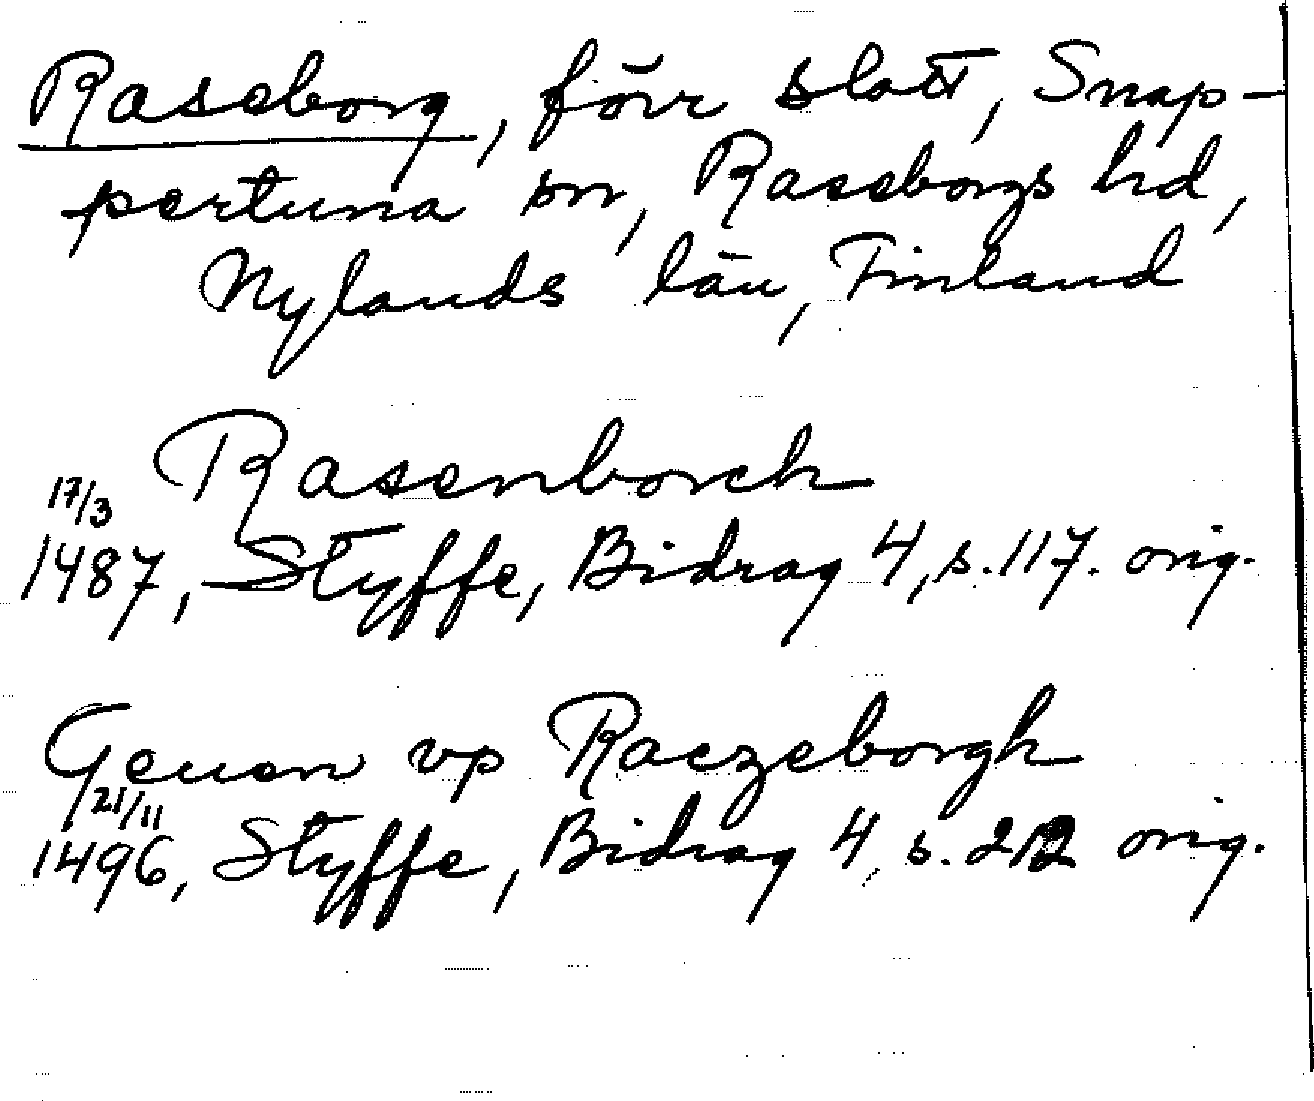 Raseborg, förr slott, Snap-
pertuna sn, Raseborgs hd,
Nylands län, Finland
Rasenborch
17/3
1487, Styffe, Bidrag 4, s. 117. orig.
Geuen vp Raezeborgh
21/11
1496, Styffe, Bidrag 4, s. 212 orig.